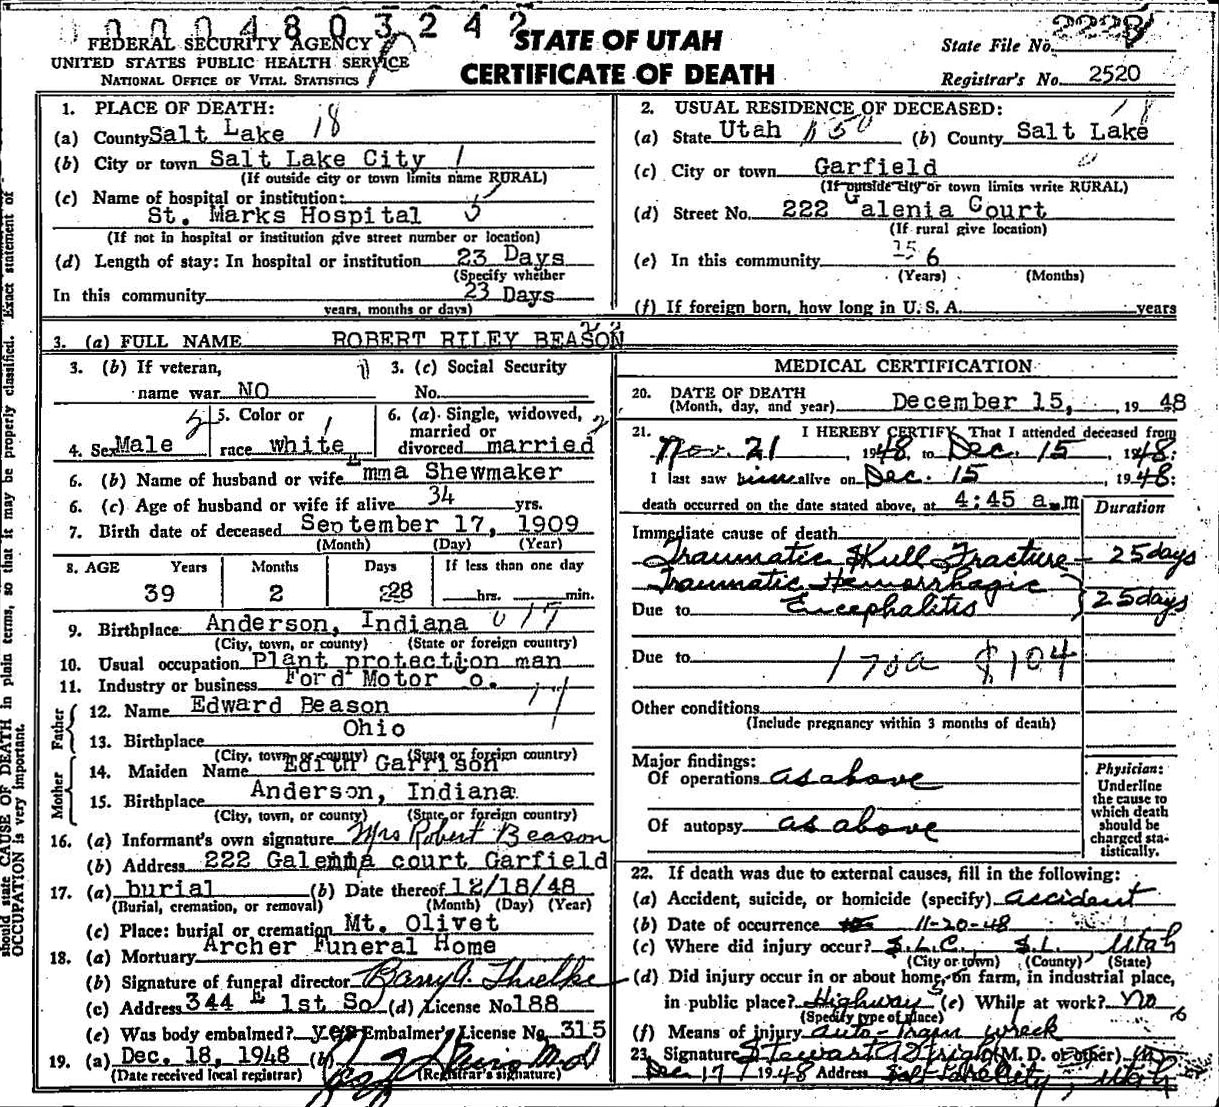 0004803242
FEDERAL SECURITY AGENCY
UNITED STATES PUBLIC HEALTH SERVICE
NATIONAL OFFICE OF VITAL STATISTICS
STATE OF UTAH
CERTIFICATE OF DEATH
State File No. 2228
Registrar's No. 2520
1. PLACE OF DEATH: 18
(a) County Salt Lake
(b) City or town Salt Lake City 1
(If outside city or town limits name RURAL)
(c) Name of hospital or institution:
St. Marks Hospital 5
(If not in hospital or institution give street number or location)
(d) Length of stay: In hospital or institution 23 Days
(Specify whether
In this community 23 Days
years, months or days)
2. USUAL RESIDENCE OF DECEASED: 18
(a) State Utah (b) County Salt Lake
(c) City or town Garfield
(If outside city or town limits write RURAL)
(d) Street No. 222 Galenia Court
(If rural give location)
(e) In this community 6
(Years) (Months)
(f) If foreign born, how long in U. S. A. years
3. (a) FULL NAME ROBERT RILEY BEASON
3. (b) If veteran, 3. (c) Social Security
name war NO No.
4. Sex Male 5. Color or race white 6. (a) Single, widowed, married or divorced married
6. (b) Name of husband or wife Emma Shewmaker
6. (c) Age of husband or wife if alive 34 yrs.
7. Birth date of deceased September 17, 1909
(Month) (Day) (Year)
8. AGE Years Months Days If less than one day
39 2 28 hrs. min.
9. Birthplace Anderson, Indiana
(City, town, or county) (State or foreign country)
10. Usual occupation Plant protection man
11. Industry or business Ford Motor Co.
Father
12. Name Edward Beason
13. Birthplace Ohio
(City, town or county) (State or foreign country)
Mother
14. Maiden Name Edith Garrison
15. Birthplace Anderson, Indiana
(City, town, or county) (State or foreign country)
16. (a) Informant's own signature Mrs Robert Beason
(b) Address 222 Galenma court Garfield
17. (a) burial (b) Date thereof 12/18/48
(Burial, cremation, or removal) (Month) (Day) (Year)
(c) Place: burial or cremation Mt. Olivet
18. (a) Mortuary Archer Funeral Home
(b) Signature of funeral director Barry A. Thielke
(c) Address 344 E 1st So (d) License No 188
(e) Was body embalmed? yes Embalmer's License No. 315
19. (a) Dec. 18, 1948 (b)
(Date received local registrar) (Registrar's signature)
MEDICAL CERTIFICATION
20. DATE OF DEATH
(Month, day, and year) December 15, 1948
21. I HEREBY CERTIFY, That I attended deceased from
Nov. 21, 1948, to Dec. 15, 1948:
I last saw him alive on Dec. 15, 1948:
death occurred on the date stated above, at 4:45 a.m
Duration
Immediate cause of death
Traumatic Skull Fracture - 25 days
Traumatic Hemorrhagic
Due to Encephalitis 25 days
Due to 170a
Other conditions
(Include pregnancy within 3 months of death)
Major findings:
Of operations as above
Of autopsy as above
Physician:
Underline
the cause to
which death
should be
charged sta-
tistically.
22. If death was due to external causes, fill in the following:
(a) Accident, suicide, or homicide (specify) accident
(b) Date of occurrence 11-20-48
(c) Where did injury occur? S.L.C. S.L. Utah
(City or town) (County) (State)
(d) Did injury occur in or about home, on farm, in industrial place,
in public place? Highway (e) While at work? no
(Specify type of place)
(f) Means of injury auto-train wreck
23. Signature Stewart A Wright (M. D. or other)
Dec 17 1948 Address Salt Lake City, Utah
should state CAUSE OF DEATH in plain terms, so that it may be properly classified. Exact statement of
OCCUPATION is very important.